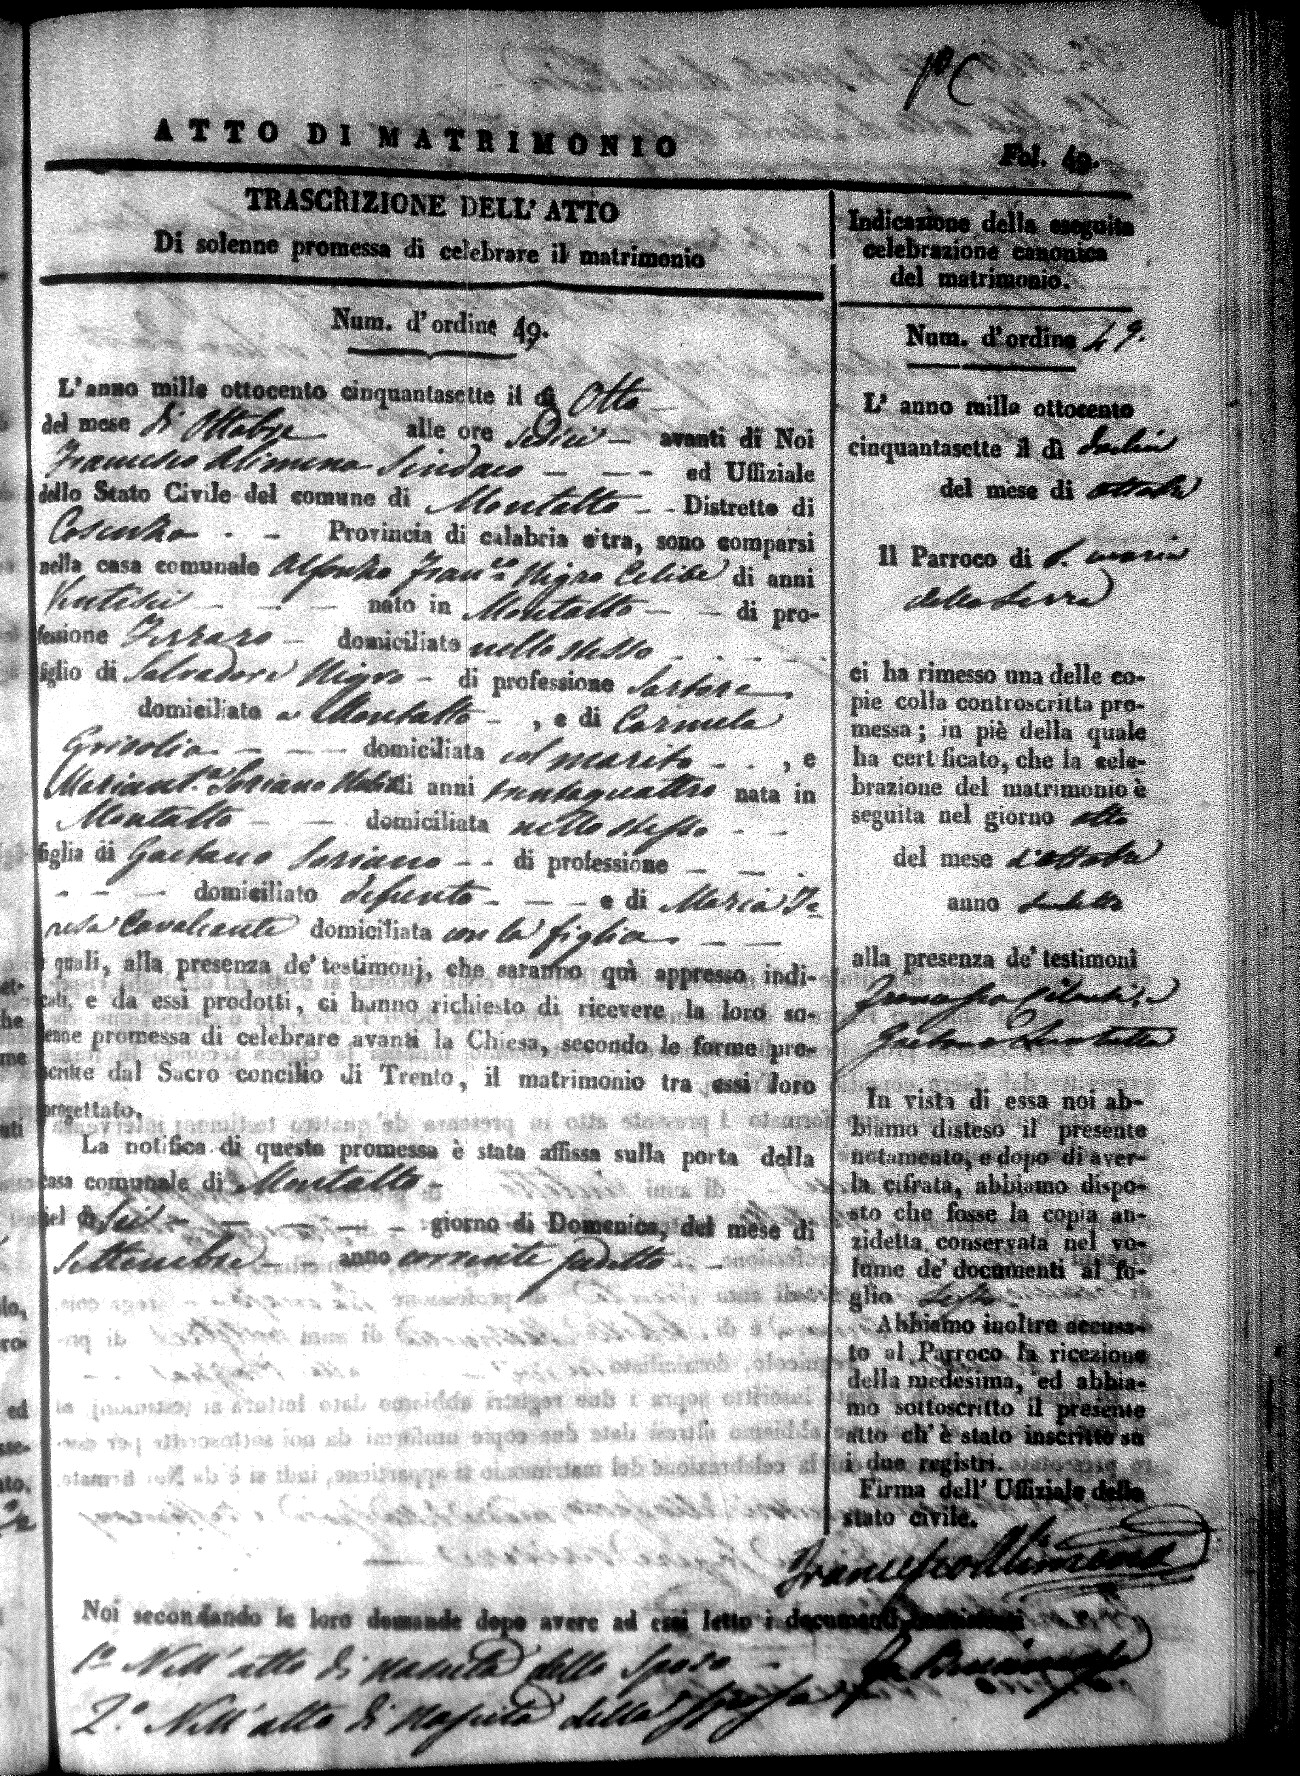 1° C
ATTO DI MATRIMONIO
Fol. 49.
TRASCRIZIONE DELL' ATTO
Di solenne promessa di celebrare il matrimonio
Num. d'ordine 49.
L'anno mille ottocento cinquantasette il dì Otto
del mese di Ottobre alle ore sedici avanti di Noi
Francesco Alimena Sindaco ed Uffiziale
dello Stato Civile del comune di Montalto Distretto di
Cosenza Provincia di calabria citra, sono comparsi
nella casa comunale Alfonzo Fran.co Nigro Celibe di anni
Ventisei nato in Montalto di pro-
fessione Ferraro domiciliato nello stesso
figlio di Salvadore Nigro di professione Sartore
domiciliato a Montalto, e di Carmela
Grisolia domiciliata col marito, e
Mariant.a Soriano di anni trentaquattro nata in
Montalto domiciliata nello stesso
figlia di Gaetano Soriano di professione
domiciliato defunto e di Maria Te-
resa Cavalcante domiciliata con la figlia
quali, alla presenza de' testimonj, che saranno quì appresso indi-
cati, e da essi prodotti, ci hanno richiesto di ricevere la loro so-
lenne promessa di celebrare avanti la Chiesa, secondo le forme pre-
scritte dal Sacro concilio di Trento, il matrimonio tra essi loro
progettato.
La notifica di questa promessa è stata affissa sulla porta della
casa comunale di Montalto
del dì Sei giorno di Domenica, del mese di
Settembre anno corrente sudetto
Noi secondando le loro domande dopo avere ad essi letto i documenti
1° Nell'atto di nascita dello Sposo
2.° Nell'atto di nascita della Sposa
Indicazione della eseguita
celebrazione canonica
del matrimonio.
Num. d'ordine 49.
L' anno mille ottocento
cinquantasette il dì
del mese di ottobre
Il Parroco di S. maria
della Serra
ci ha rimesso una delle co-
pie colla controscritta pro-
messa; in piè della quale
ha certificato, che la cele-
brazione del matrimonio è
seguita nel giorno otto
del mese d'ottobre
anno sudetto
alla presenza de' testimoni
In vista di essa noi ab-
biamo disteso il presente
notamento, e dopo di aver-
la cifrata, abbiamo dispo-
sto che fosse la copia an-
zidetta conservata nel vo-
lume de' documenti al fo-
glio
Abbiamo inoltre accusa-
to al Parroco la ricezione
della medesima, ed abbia-
mo sottoscritto il presente
atto ch'è stato inscritto su
i due registri.
Firma dell' Uffiziale dello
stato civile.
Francesco Alimena